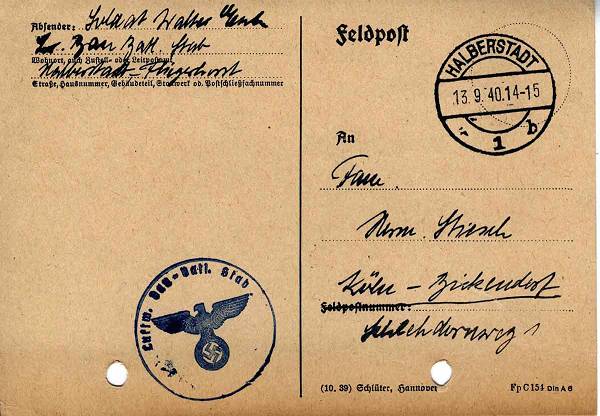 Absender: Soldat Walter
Bau Stab
Wohnort, auch Zustell- oder Leitpostamt
Halberstadt-Fliegerhorst
Straße, Hausnummer, Gebäudeteil, Stockwerk od. Postschließfachnummer
Luftw. Bau-Batl. Stab
Feldpost
HALBERSTADT
13.9.40.14-15
1 b
An
Fam.
Herm.
Köln - Bickendorf
Feldpostnummer:
Schlehdornweg 1
(10. 39) Schlüter, Hannover
Fp C 154 Din A 6